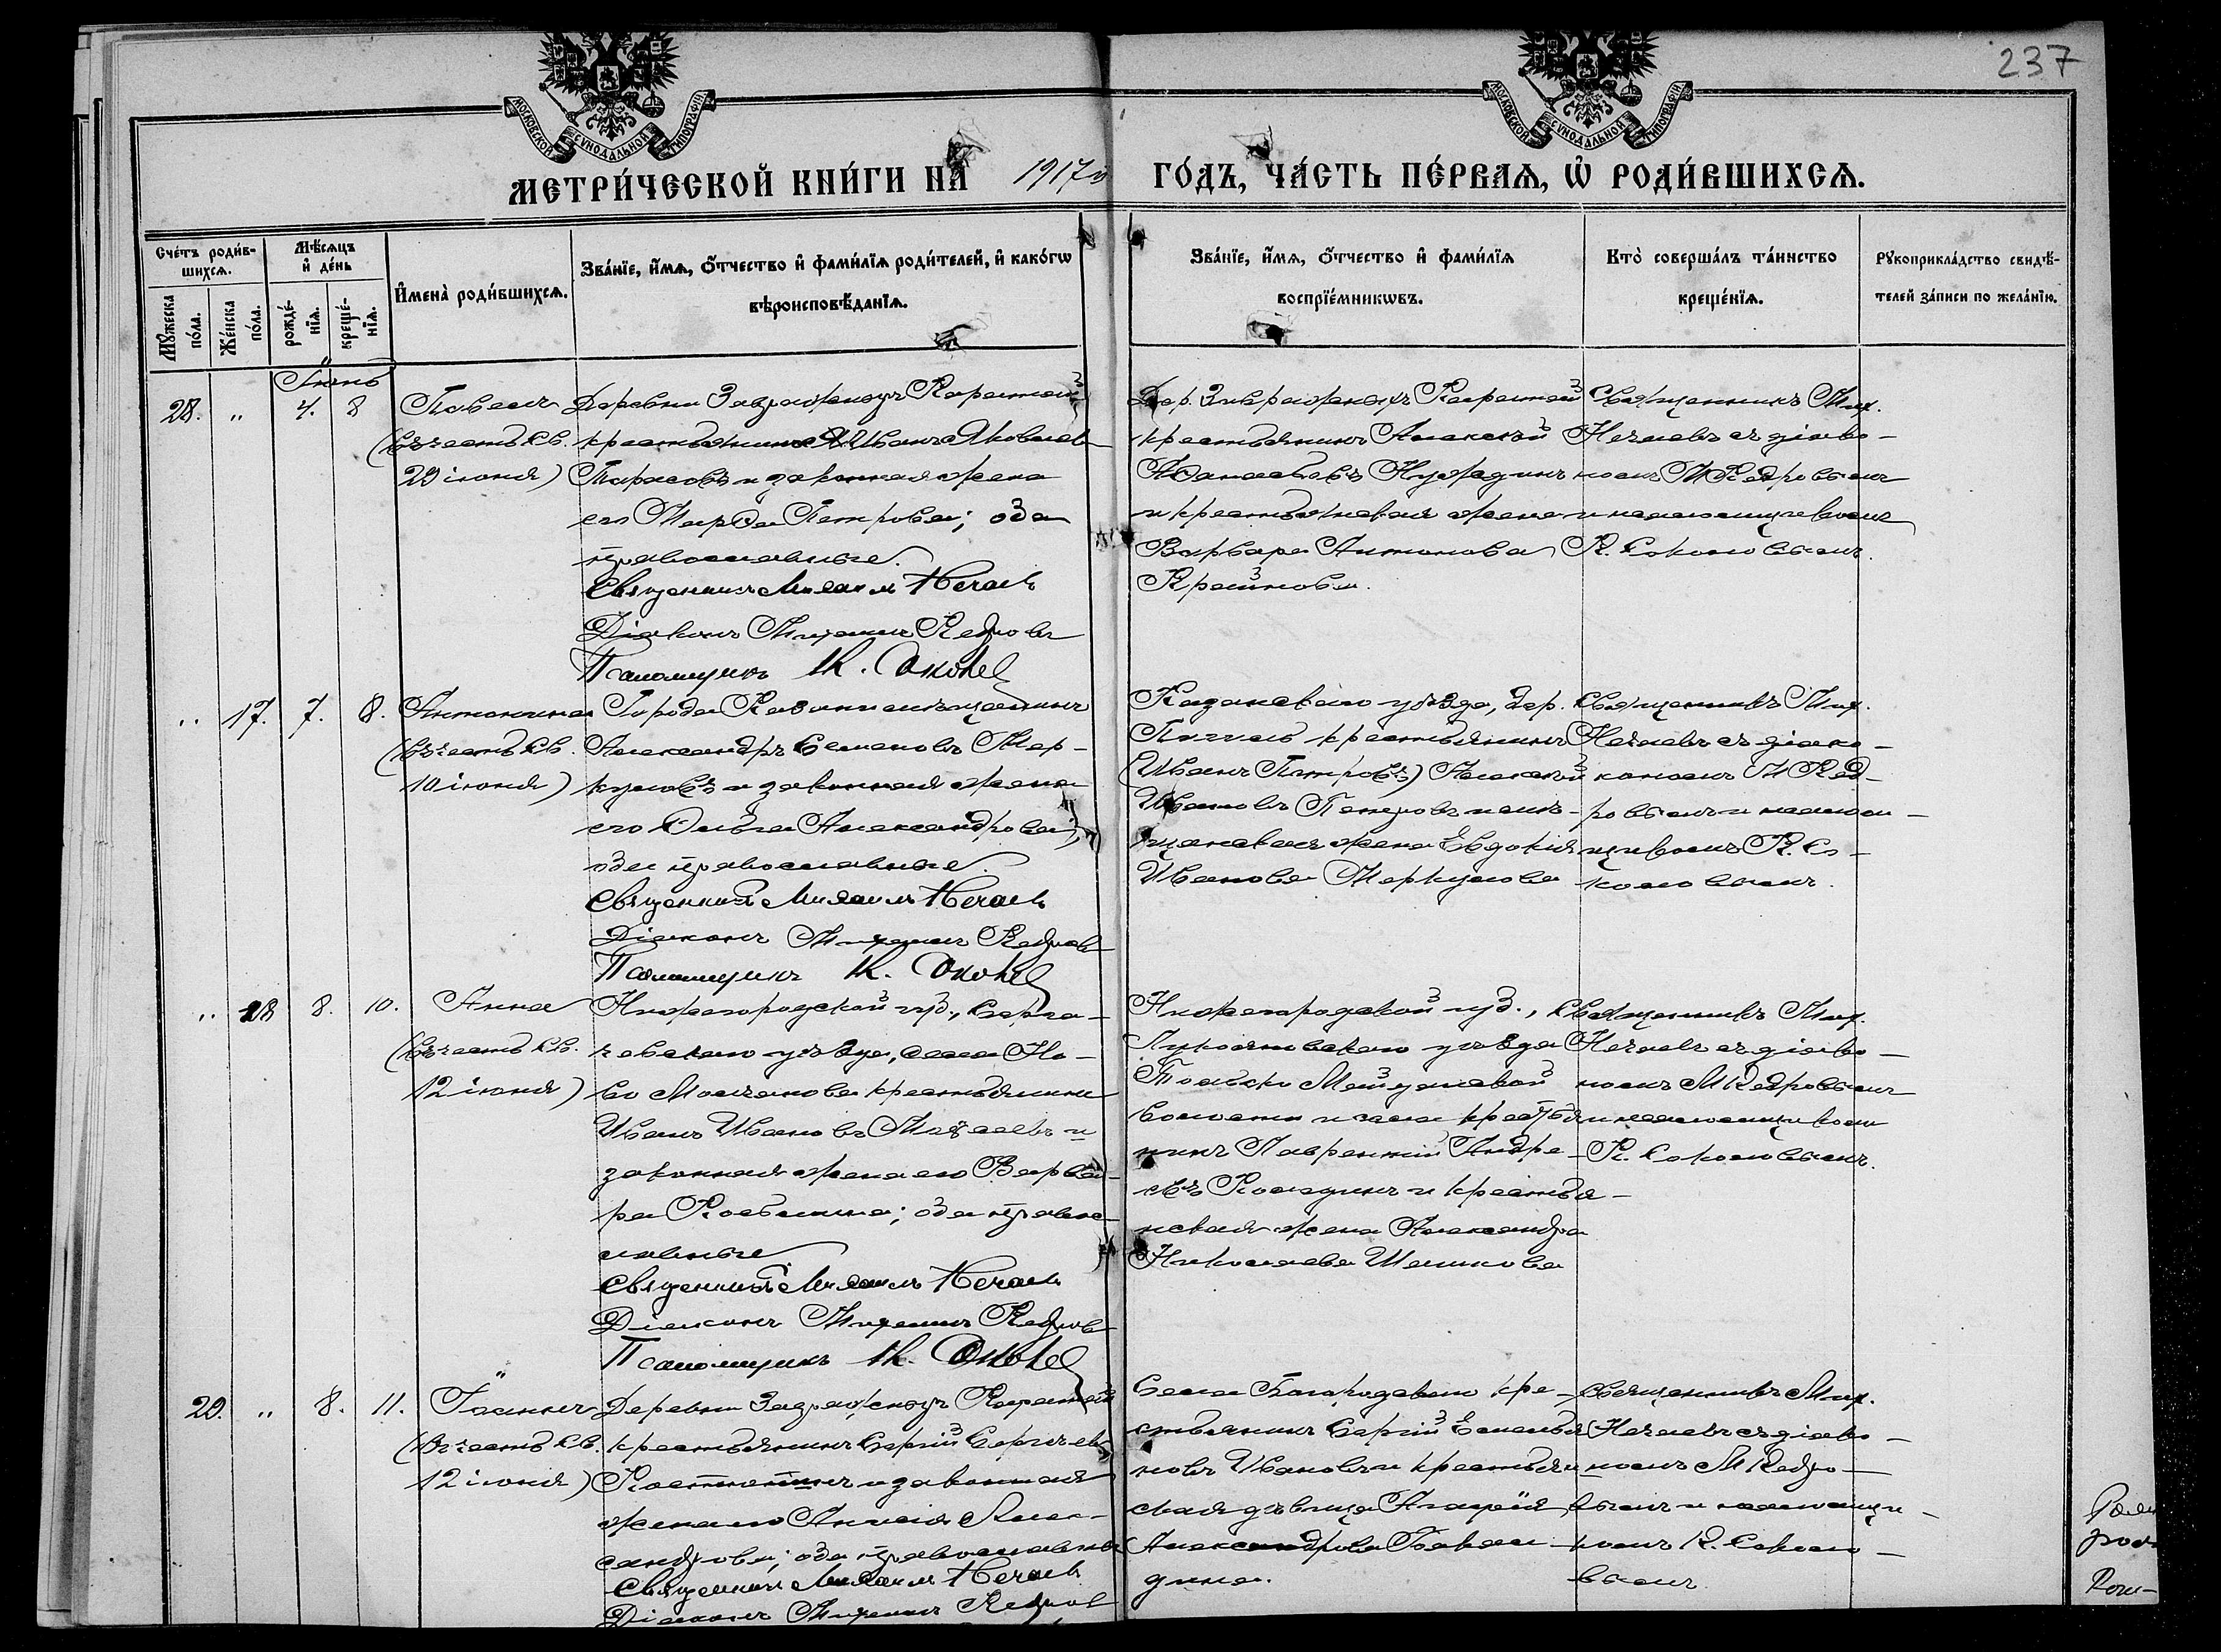 237
МОСКОВСКОЙ СѴНОДАЛЬНОЙ ТИПОГРАФІИ
МОСКОВСКОЙ СѴНОДАЛЬНОЙ ТИПОГРАФІИ
МЕТРИ́ЧЕСКОЙ КНИ́ГИ НА 1917й ГО́ДЪ, ЧА́СТЬ ПЕ́РВАѦ, Ѡ҆ РОДИ́ВШИХСѦ.
Сче́тъ роди́в-
шихсѧ.
Мꙋ́жеска по́ла.
Же́нска по́ла.
Мѣ́сѧцъ
и҆ де́нь
рожде́-
нїѧ.
креще́-
нїѧ.
И҆мена̀ роди́вшихсѧ.
Зва́нїе, и҆́мѧ, ѻ҆́тчество и҆ фами́лїѧ роди́телей, и҆ како́гѡ
вѣроисповѣ́данїѧ.
Зва́нїе, и҆́мѧ, ѻ҆́тчество и҆ фами́лїѧ
воспрїе́мникѡвъ.
Кто̀ соверша́лъ та́инство
креще́нїѧ.
Рꙋкоприкла́дство свидѣ́-
телей за́писи по жела́нїю.
Іюнь
28. " 4. 8
Павелъ
(въ честь св.
29 іюня)
Деревни Заовражныхъ Каратай
крестьянинъ Иванъ Яковлев
Тарасовъ и законная жена
его Марѳа Петрова; оба
православные.
Священникъ Михаилъ Нечаевъ
Діаконъ Михаилъ Кедровъ
Псаломщикъ К. Соколов
Дер. Заовражныхъ Каратай
крестьянинъ Алексѣй
Аѳанасьевъ Нуждинъ
и крестьянская жена
Варвара Антонова
Крайнова.
Священникъ Мих.
Нечаевъ съ діако-
номъ М Кедровымъ
и псаломщикомъ
К. Соколовымъ.
" 17. 7. 8.
Антонина
(въ честь св.
10 іюня)
Города Казани мѣщанинъ
Александръ Семеновъ Мер-
куловъ и законная жена
его Ольга Александрова;
оба православные.
Священникъ Михаилъ Нечаевъ
Діаконъ Михаилъ Кедровъ
Псаломщикъ К. Соколов
Казанскаго уѣзда, дер.
крестьянинъ
(Иванъ Петровъ) Алексѣй
Ивановъ Петровъ и мѣ-
щанская жена Евдокія
Иванова Меркулова
Священникъ Мих.
Нечаевъ съ діако-
номъ М Кед-
ровымъ и псалом-
щикомъ К. Со-
коловымъ.
" 18 8. 10.
Анна
(въ честь св.
12 іюня)
Нижегородской губ., Серга-
чевскаго уѣзда, села Но-
во Мочалова крестьянинъ
Иванъ Ивановъ и
законная жена его Варва-
ра Козьмина; оба право-
славные
Священникъ Михаилъ Нечаевъ
Діаконъ Михаилъ Кедровъ
Псаломщикъ К. Соколов
Нижегородской губ.,
Лукояновскаго уѣзда
Майданской
волости и села крестья
нинъ Лаврентій Андре-
евъ и крестья-
нская жена Александра
Николаева
Священникъ Мих.
Нечаевъ съ діако-
номъ М Кедровымъ
и псаломщикомъ
К. Соколовымъ.
29. " 8. 11.
Іоаннъ
(въ честь св.
12 іюня)
Деревни Заовражныхъ Каратай
крестьянинъ Сергій Сергѣевъ
и законная
жена его Анисія Алек-
сандрова; оба православные
Священникъ Михаилъ Нечаевъ
Діаконъ Михаилъ Кедровъ
Села Богородскаго кре-
стьянинъ Сергій Емелья
новъ Ивановъ и крестьян
ская дѣвица
Александрова
Священникъ Мих.
Нечаевъ съ діако-
номъ М Кедро-
вымъ и псаломщи-
комъ К. Соколо-
вымъ